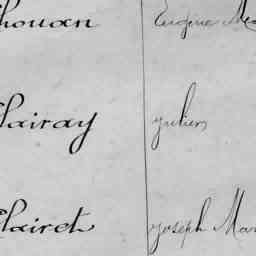 houan Eugène Me
lairay Julien
lairet Joseph Mar